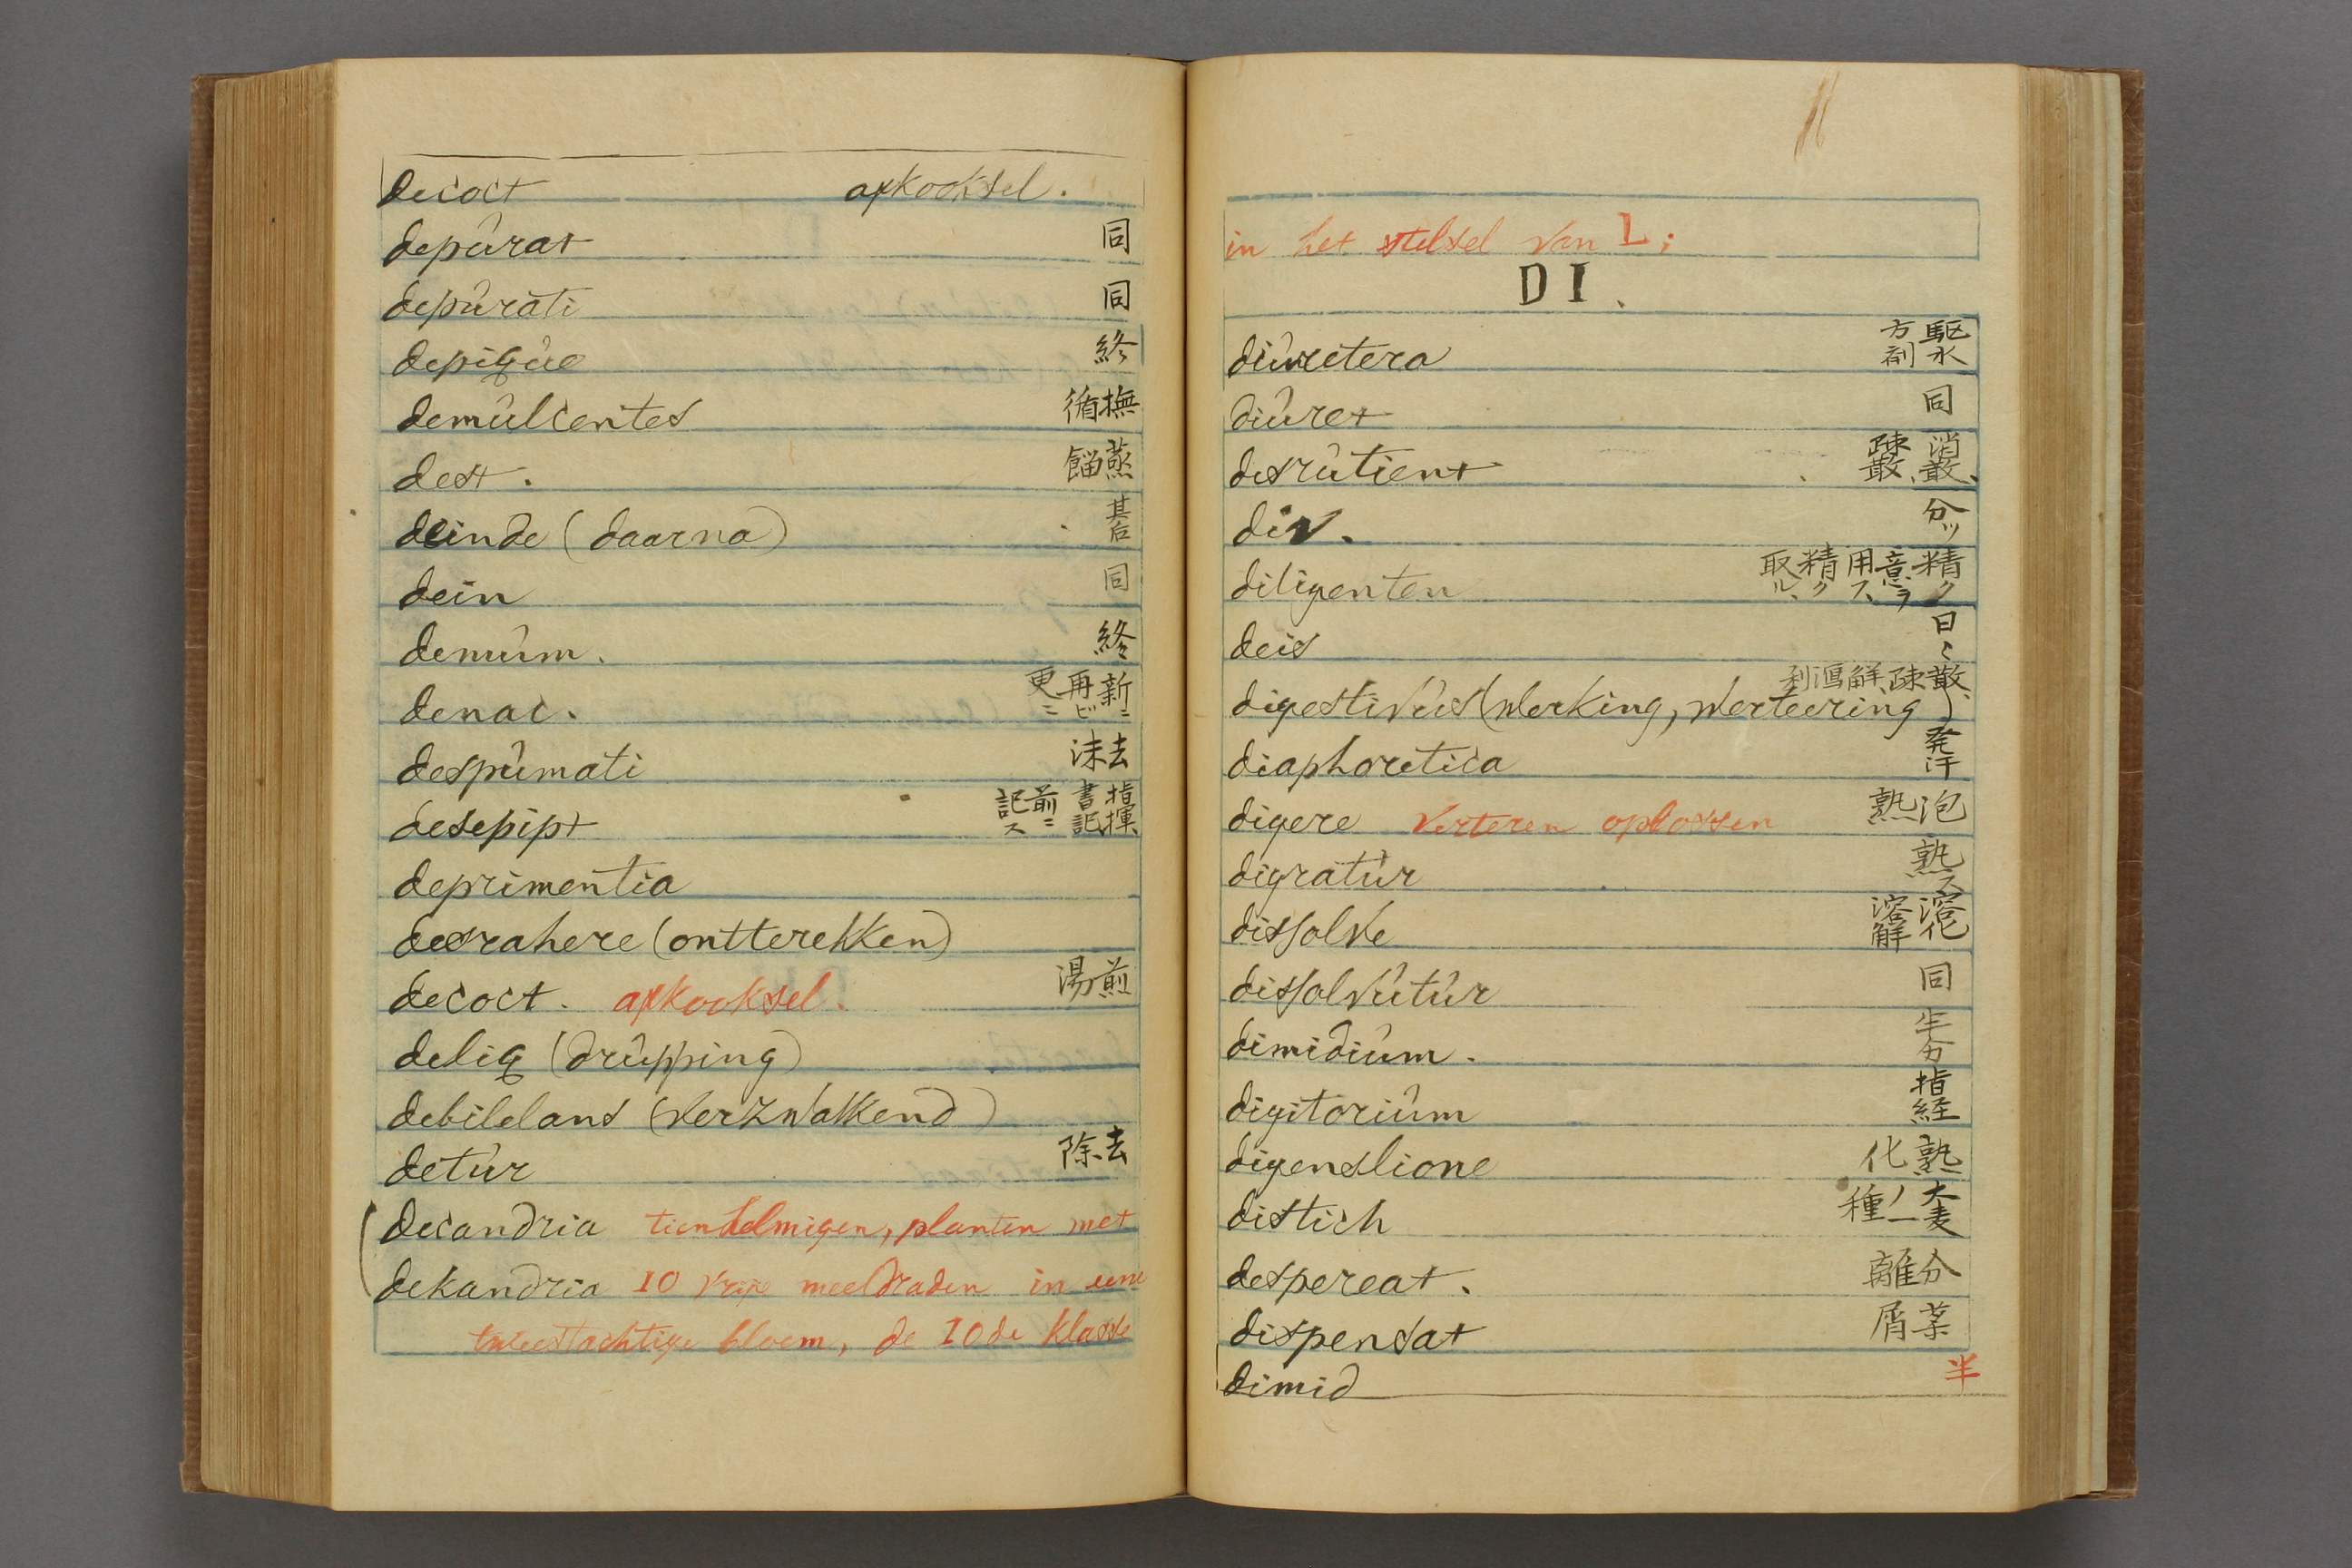 decoct afkooksel.
depûrat 同
depûrati 同
depiqûe 終
demûlcentes 撫循
dest. 蒸餾
deinde (daarna) 其后
dein 同
demûm. 終
denac. 新ニ 再ビ 更ニ
despûmati 去沫
desepipt 指揮、書記 前ニ記ス
deprimentia
desrahere (onttrekken)
decoct. afkooksel. 煎湯
deliq (drûpping)
debilelans (verzwakkend)
detûr 去除
decandria tienhelmigen, planten met
dekandria 10 vrije meeldraden in eene
tweeslachtige bloem, de 10de klasse
in het stelsel van L;
DI.
diûretera 駆水方剤
diûret 同
desrûtient 消散、疎散、
div. 分ツ
diligenten 精ク意ヲ用ス、精ク取ル、
deis 日〻
digestivûs (werking, verteering) 散、疎、解、瀉利
diaphoretica 発汗
digere verteren oplossen 泡熟
digratûr 熟ス
dissolve 溶化 溶解
dissolvûtûr 同
dimidiûm. 半分
digitoriûm 指経
digenslione 熟化
distich 大麦ノ一種
despereat. 分離
dispensat 屑
dimid 半